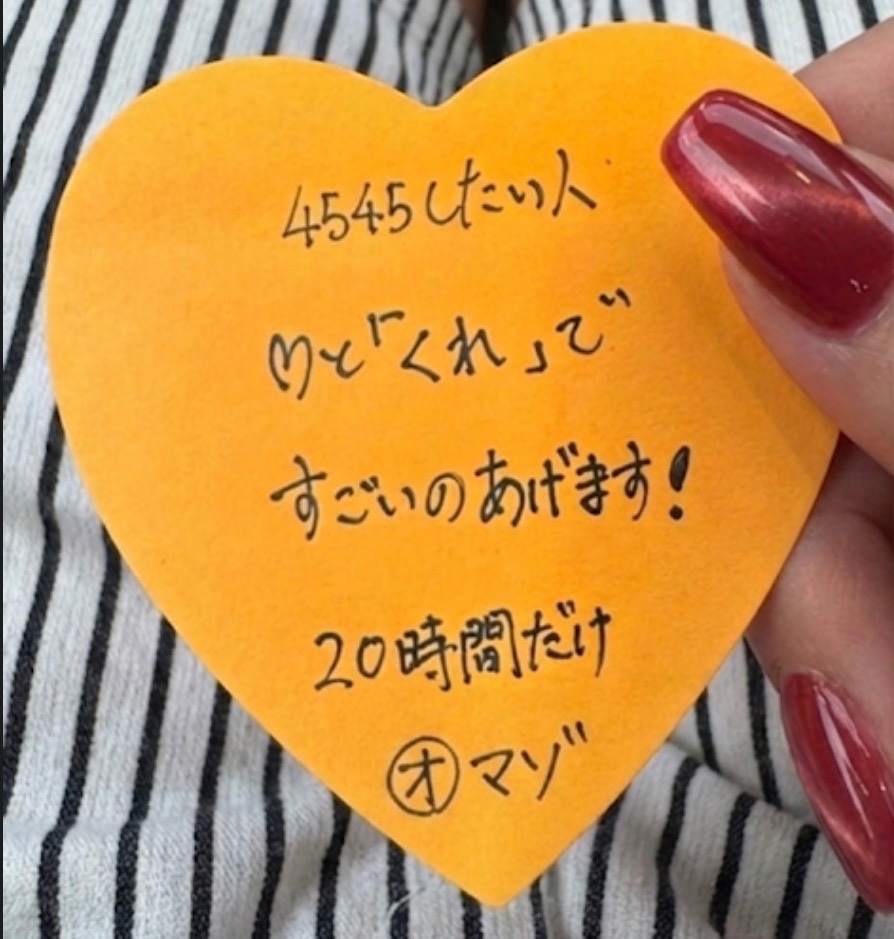 4545したい人
♡と「くれ」で
すごいのあげます!
20時間だけ
㋔マゾ